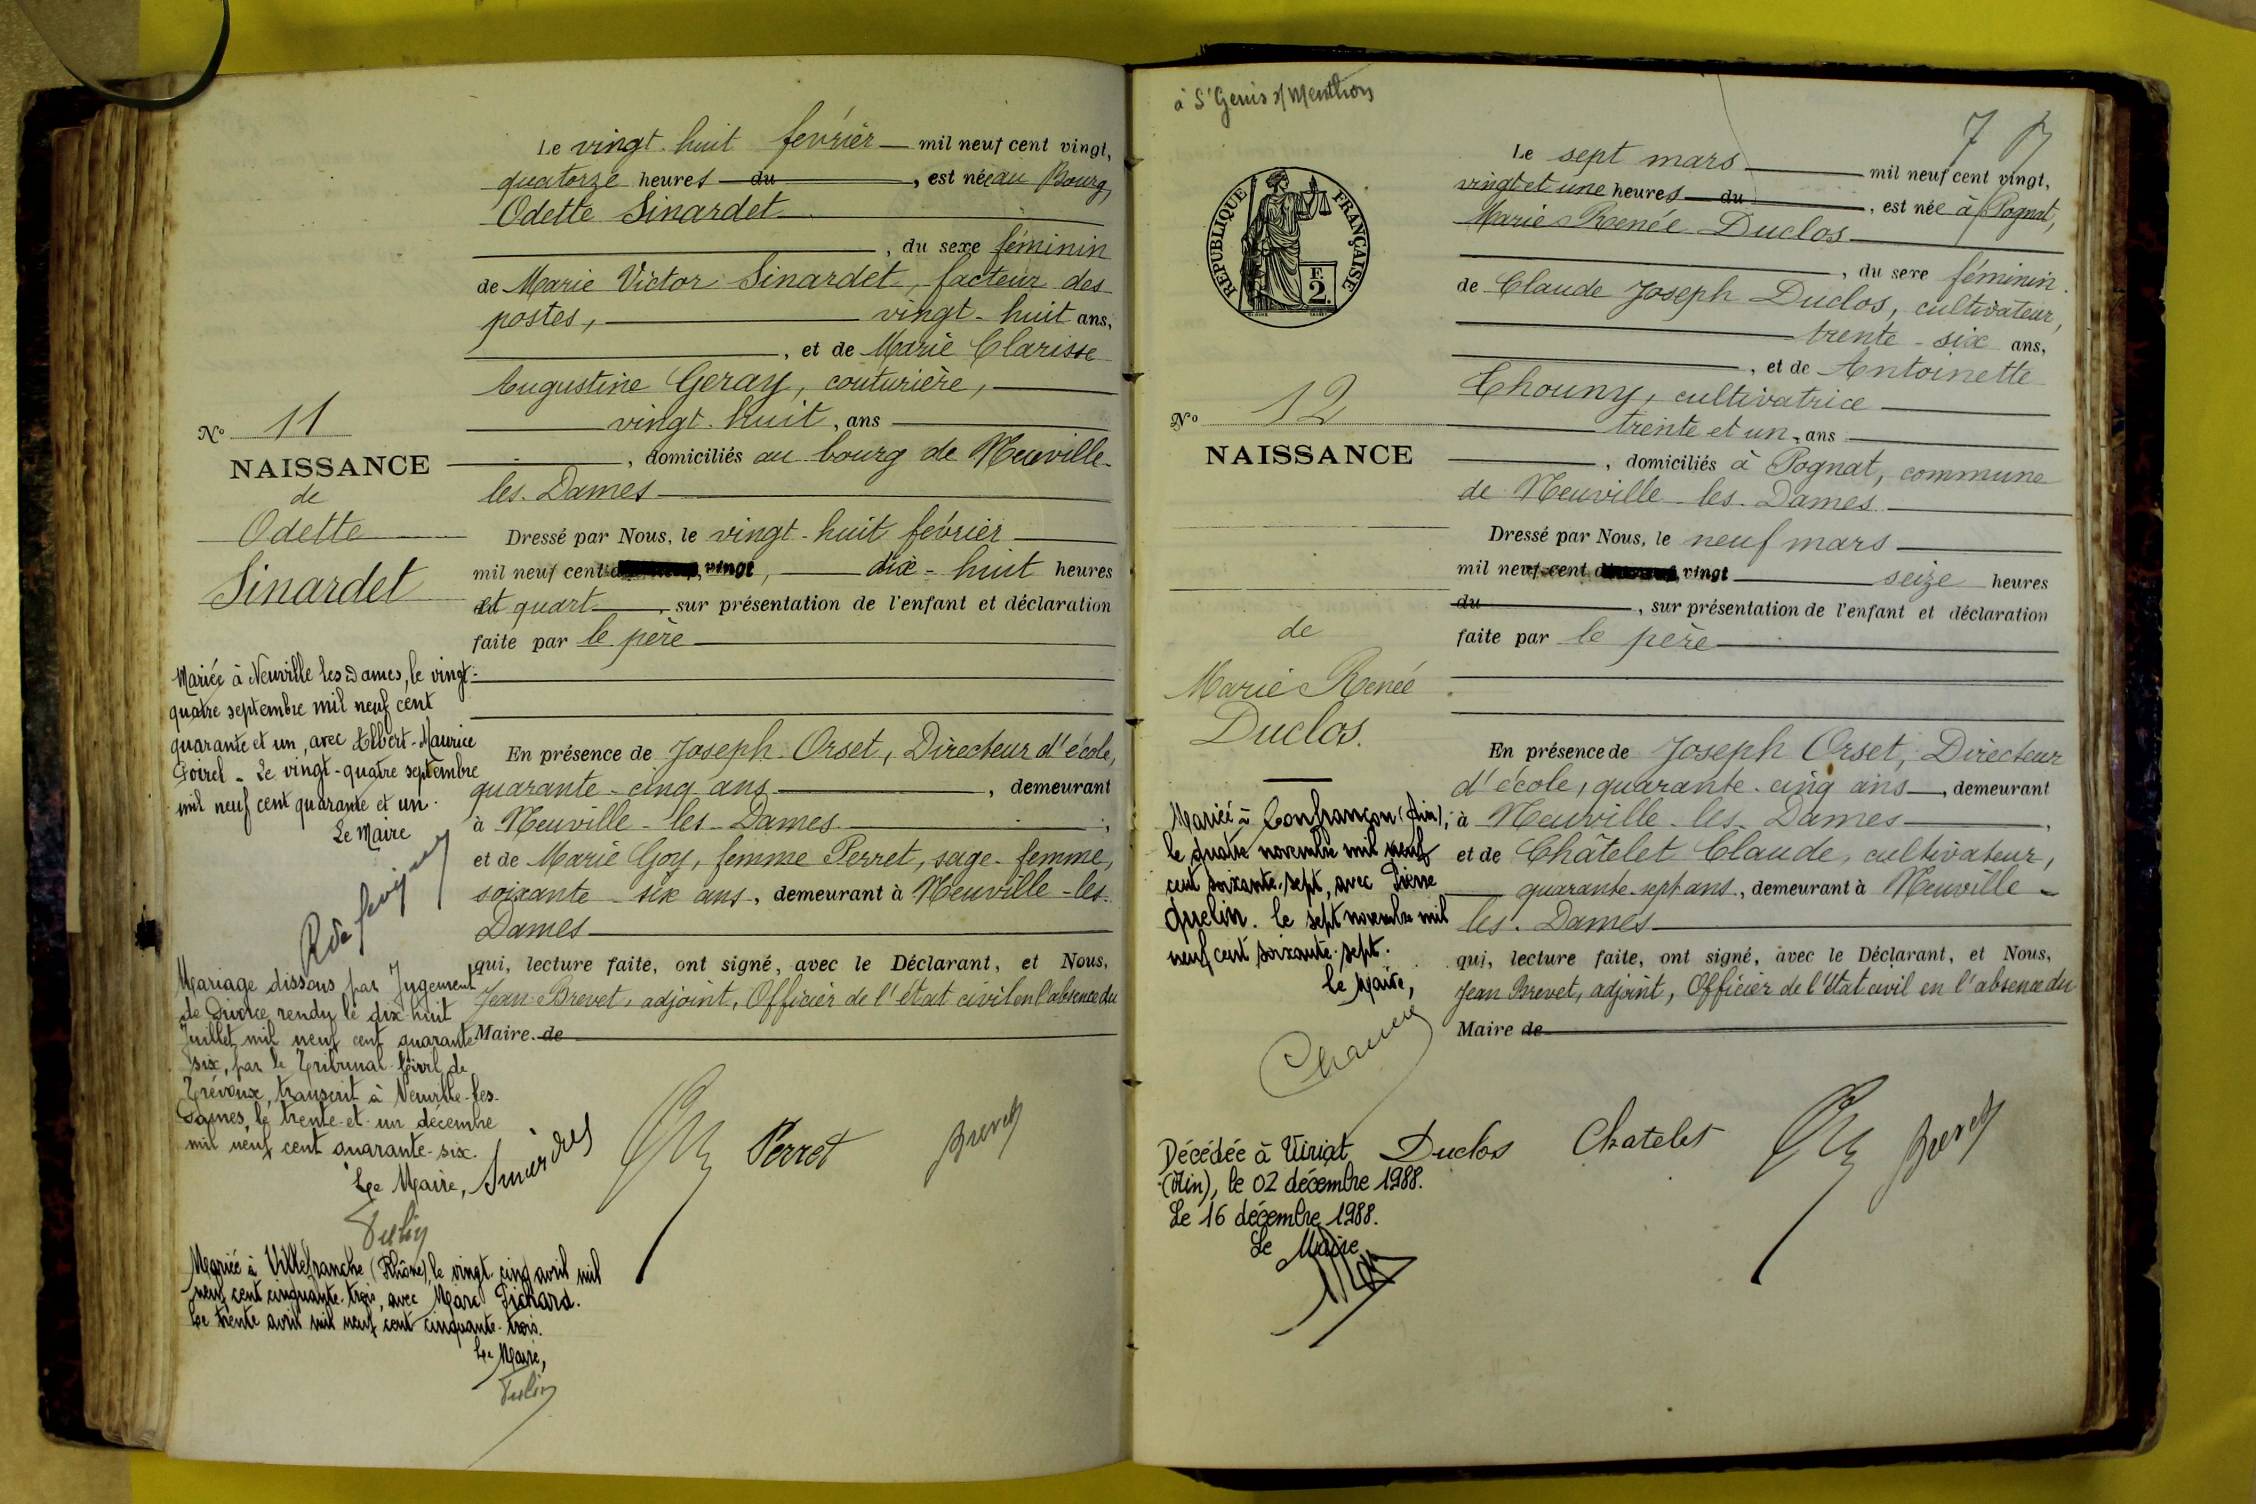 Le vingt-huit février mil neuf cent vingt,
quatorze heures du, est née au Bourg,
Odette Sinardet
, du sexe féminin
de Marie Victor Sinardet, facteur des
postes, vingt-huit ans,
, et de Marie Clarisse
Augustine Geray, couturière,
vingt-huit, ans
, domiciliés au bourg de Neuville-
les-Dames
Dressé par Nous, le vingt-huit février
mil neuf cent vingt, dix-huit heures
et quart, sur présentation de l'enfant et déclaration
faite par le père
En présence de Joseph Orset, Directeur d'école,
quarante-cinq ans, demeurant
à Neuville-les-Dames,
et de Marie Goy, femme Perret, sage-femme,
soixante-six ans, demeurant à Neuville-les-
Dames
qui, lecture faite, ont signé, avec le Déclarant, et Nous,
Jean Brevet, adjoint, Officier de l'état civil en l'absence du
Maire. de
Perret Brevet
No 11
NAISSANCE
de
Odette
Sinardet
Mariée à Neuville les Dames, le vingt-
quatre septembre mil neuf cent
quarante et un, avec Albert-Maurice
Poirel - Le vingt-quatre septembre
mil neuf cent quarante et un.
Le Maire
Mariage dissous par Jugement
de Divorce rendu le dix-huit
Juillet mil neuf cent quarante
six, par le Tribunal Civil de
Trévoux, transcrit à Neuville-les-
Dames, le trente-et-un décembre
mil neuf cent quarante-six.
Le Maire,
Mariée à Villefranche (Rhône), le vingt-cinq avril mil
neuf cent cinquante-trois, avec Marc Pichard.
Le trente avril mil neuf cent cinquante-trois.
Le Maire,
à St Genis s/ Menthon
7
RÉPUBLIQUE FRANÇAISE
F.
2.
Le sept mars mil neuf cent vingt,
vingt et une heures du, est née à Pognat,
Marie Renée Duclos
, du sexe féminin
de Claude Joseph Duclos, cultivateur,
trente-six ans,
, et de Antoinette
Chouny, cultivatrice
trente et un, ans
, domiciliés à Pognat, commune
de Neuville-les-Dames
Dressé par Nous, le neuf mars
mil neuf cent vingt seize heures
du, sur présentation de l'enfant et déclaration
faite par le père
En présence de Joseph Orset, Directeur
d'école, quarante-cinq ans, demeurant
à Neuville-les-Dames,
et de Châtelet Claude, cultivateur,
quarante-sept ans, demeurant à Neuville-
les-Dames
qui, lecture faite, ont signé, avec le Déclarant, et Nous,
Jean Brevet, adjoint, Officier de l'état civil en l'absence du
Maire de
Duclos Chatelet Brevet
No 12
NAISSANCE
de
Marie Renée
Duclos.
Mariée à Confrançon (Ain),
le quatre novembre mil neuf
cent soixante-sept, avec Pierre
Guelin. Le sept novembre mil
neuf cent soixante-sept.
Le Maire,
Décédée à Viriat
(Ain), le 02 décembre 1988.
Le 16 décembre 1988.
Le Maire